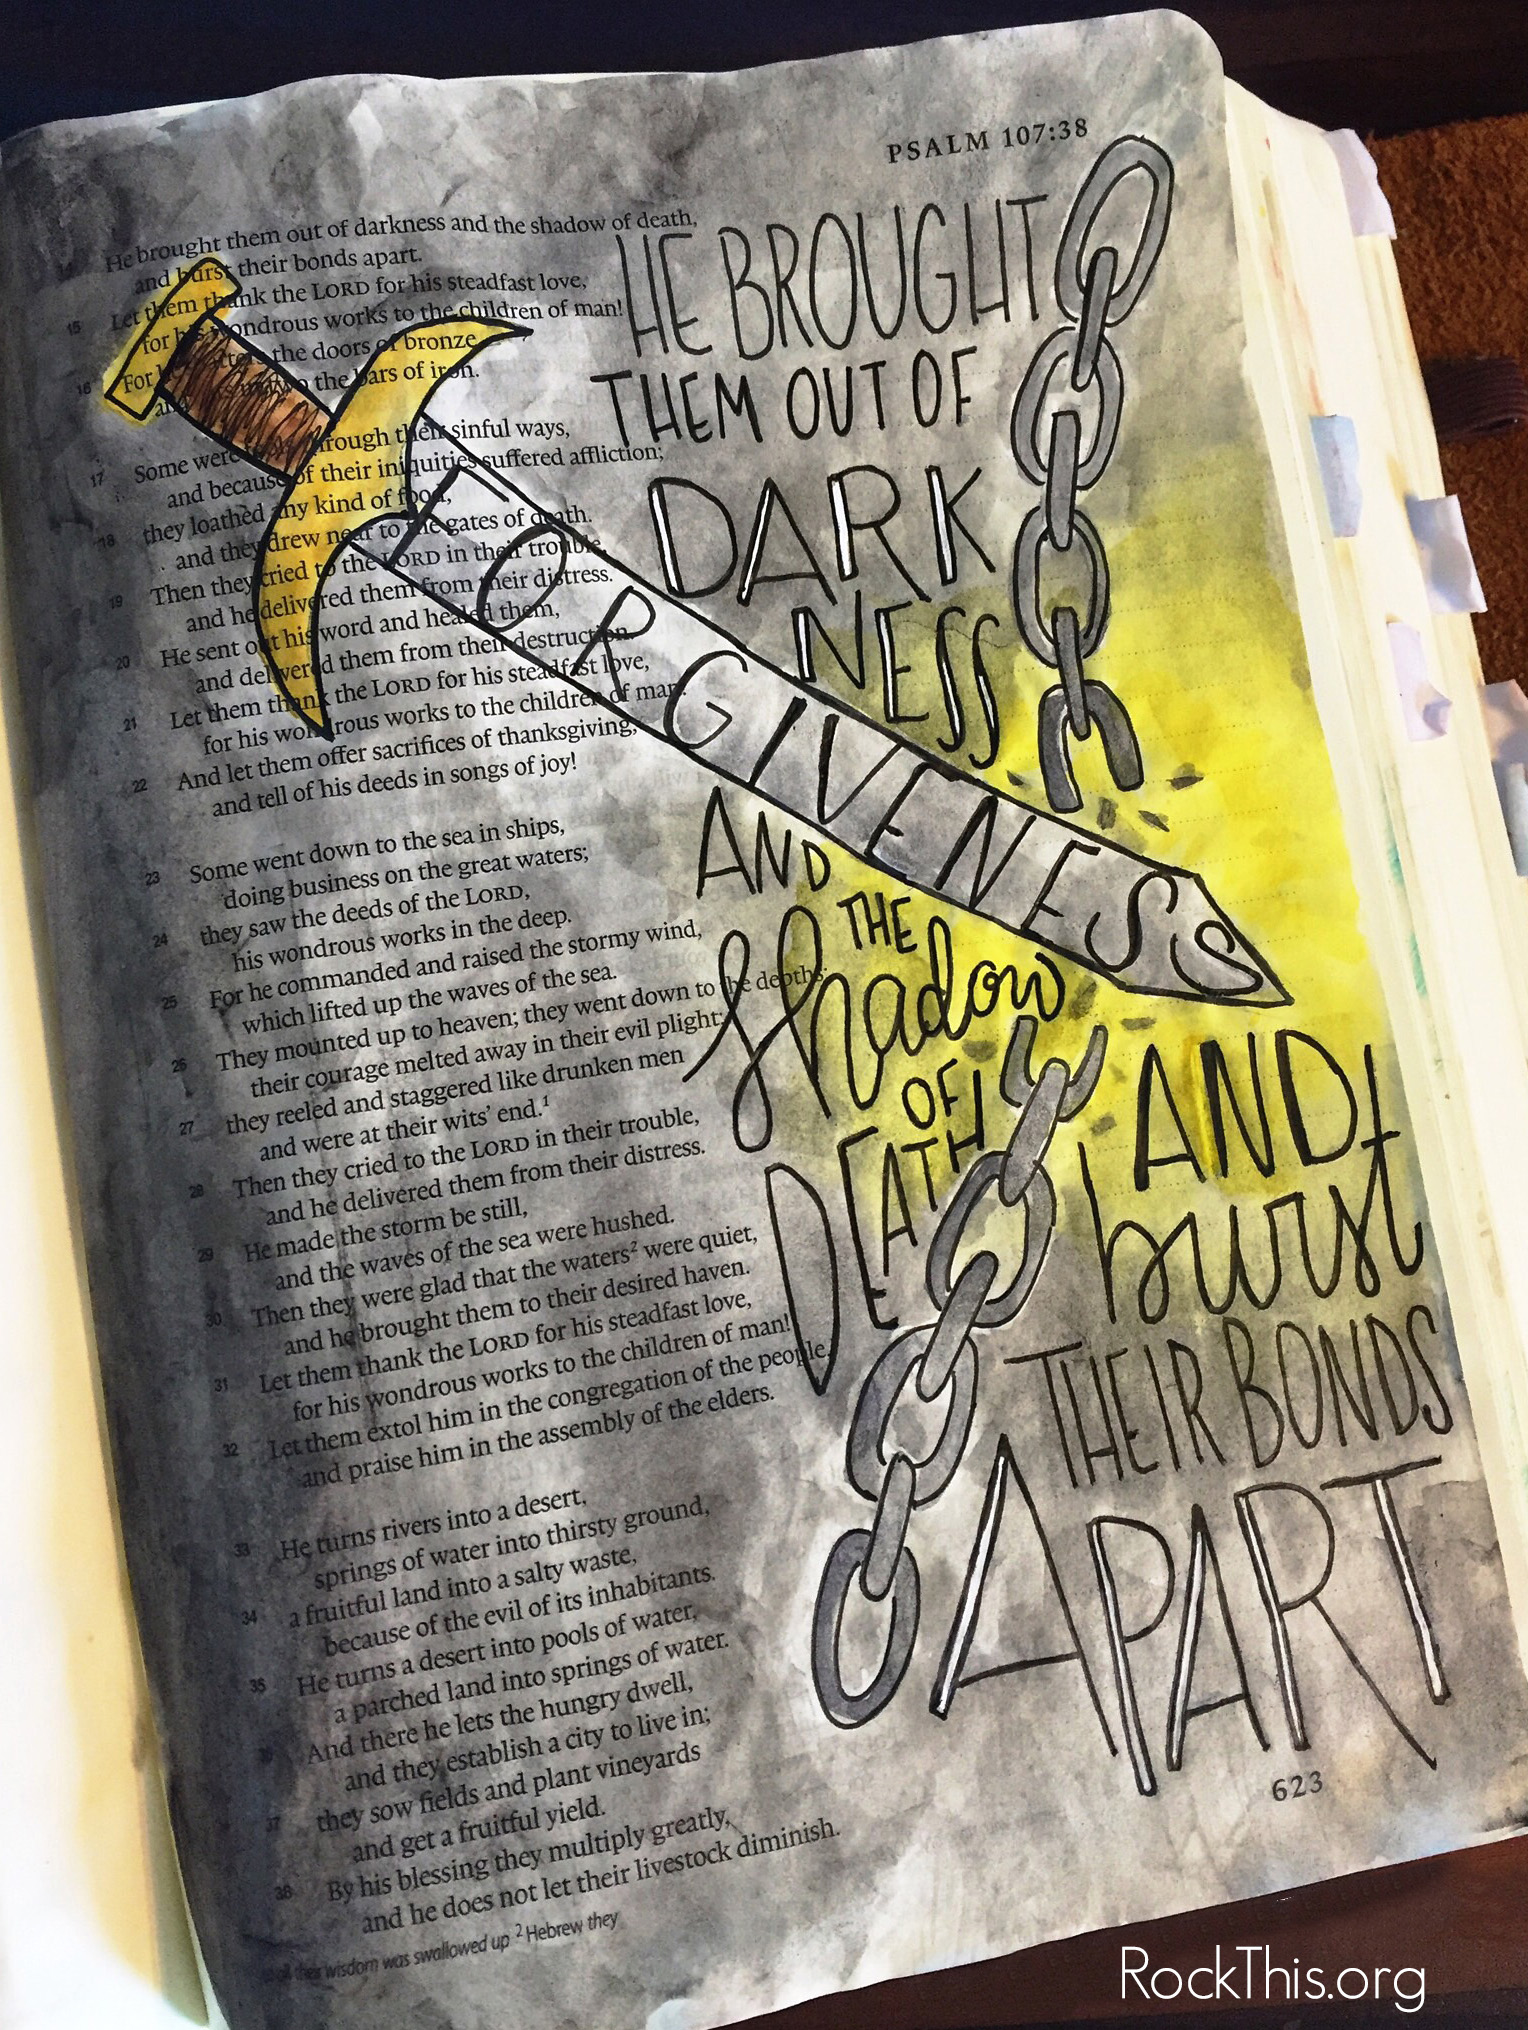 PSALM 107:38
14 He brought them out of darkness and the shadow of death,
and burst their bonds apart.
15 Let them thank the LORD for his steadfast love,
for his wondrous works to the children of man!
16 For the doors of bronze
the bars of iron.
17 Some were through their sinful ways,
and because of their iniquities suffered affliction;
18 they loathed any kind of food,
and they drew near to the gates of death.
19 Then they cried to the LORD in their trouble,
and he delivered them from their distress.
20 He sent out his word and healed them,
and delivered them from their destruction.
21 Let them thank the LORD for his steadfast love,
for his wondrous works to the children of man!
22 And let them offer sacrifices of thanksgiving,
and tell of his deeds in songs of joy!
23 Some went down to the sea in ships,
doing business on the great waters;
24 they saw the deeds of the LORD,
his wondrous works in the deep.
25 For he commanded and raised the stormy wind,
which lifted up the waves of the sea.
26 They mounted up to heaven; they went down to the depths;
their courage melted away in their evil plight;
27 they reeled and staggered like drunken men
and were at their wits' end.1
28 Then they cried to the LORD in their trouble,
and he delivered them from their distress.
29 He made the storm be still,
and the waves of the sea were hushed.
30 Then they were glad that the waters2 were quiet,
and he brought them to their desired haven.
31 Let them thank the LORD for his steadfast love,
for his wondrous works to the children of man!
32 Let them extol him in the congregation of the people,
and praise him in the assembly of the elders.
33 He turns rivers into a desert,
springs of water into thirsty ground,
34 a fruitful land into a salty waste,
because of the evil of its inhabitants.
35 He turns a desert into pools of water,
a parched land into springs of water.
36 And there he lets the hungry dwell,
and they establish a city to live in;
37 they sow fields and plant vineyards
and get a fruitful yield.
38 By his blessing they multiply greatly,
and he does not let their livestock diminish.
their wisdom was swallowed up 2 Hebrew they
HE BROUGHT
THEM OUT OF
DARK
NESS
FORGIVENESS
AND
THE
Shadow
OF
DEATH
AND
burst
THEIR BONDS
APART
623
RockThis.org